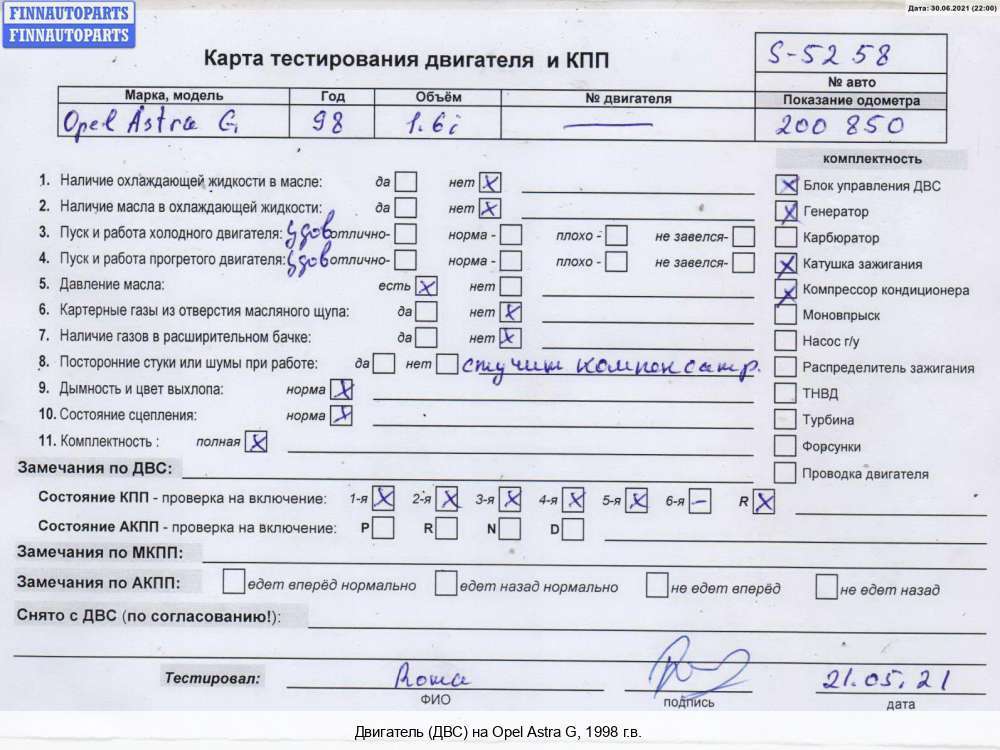 FINNAUTOPARTS
FINNAUTOPARTS
Дата: 30.06.2021 (22:00)
Карта тестирования двигателя и КПП
S-5258
№ авто
Марка, модель Год Объём № двигателя Показание одометра
Opel Astra G, 98 1.6i — 200 850
комплектность
1. Наличие охлаждающей жидкости в масле: да нет X
X Блок управления ДВС
2. Наличие масла в охлаждающей жидкости: да нет X
X Генератор
3. Пуск и работа холодного двигателя: удов отлично- норма - плохо - не завелся-
Карбюратор
4. Пуск и работа прогретого двигателя: удов отлично- норма - плохо - не завелся-
X Катушка зажигания
5. Давление масла: есть X нет
X Компрессор кондиционера
6. Картерные газы из отверстия масляного щупа: да нет X
Моновпрыск
7. Наличие газов в расширительном бачке: да нет X
Насос г/у
8. Посторонние стуки или шумы при работе: да нет стучит компенсатр.
Распределитель зажигания
9. Дымность и цвет выхлопа: норма X
ТНВД
10. Состояние сцепления: норма X
Турбина
11. Комплектность : полная X
Форсунки
Замечания по ДВС:
Проводка двигателя
Состояние КПП - проверка на включение: 1-я X 2-я X 3-я X 4-я X 5-я X 6-я — R X
Состояние АКПП - проверка на включение: P R N D
Замечания по МКПП:
Замечания по АКПП: едет вперёд нормально едет назад нормально не едет вперёд не едет назад
Снято с ДВС (по согласованию!):
Тестировал: Roma 21.05.21
ФИО подпись дата
Двигатель (ДВС) на Opel Astra G, 1998 г.в.